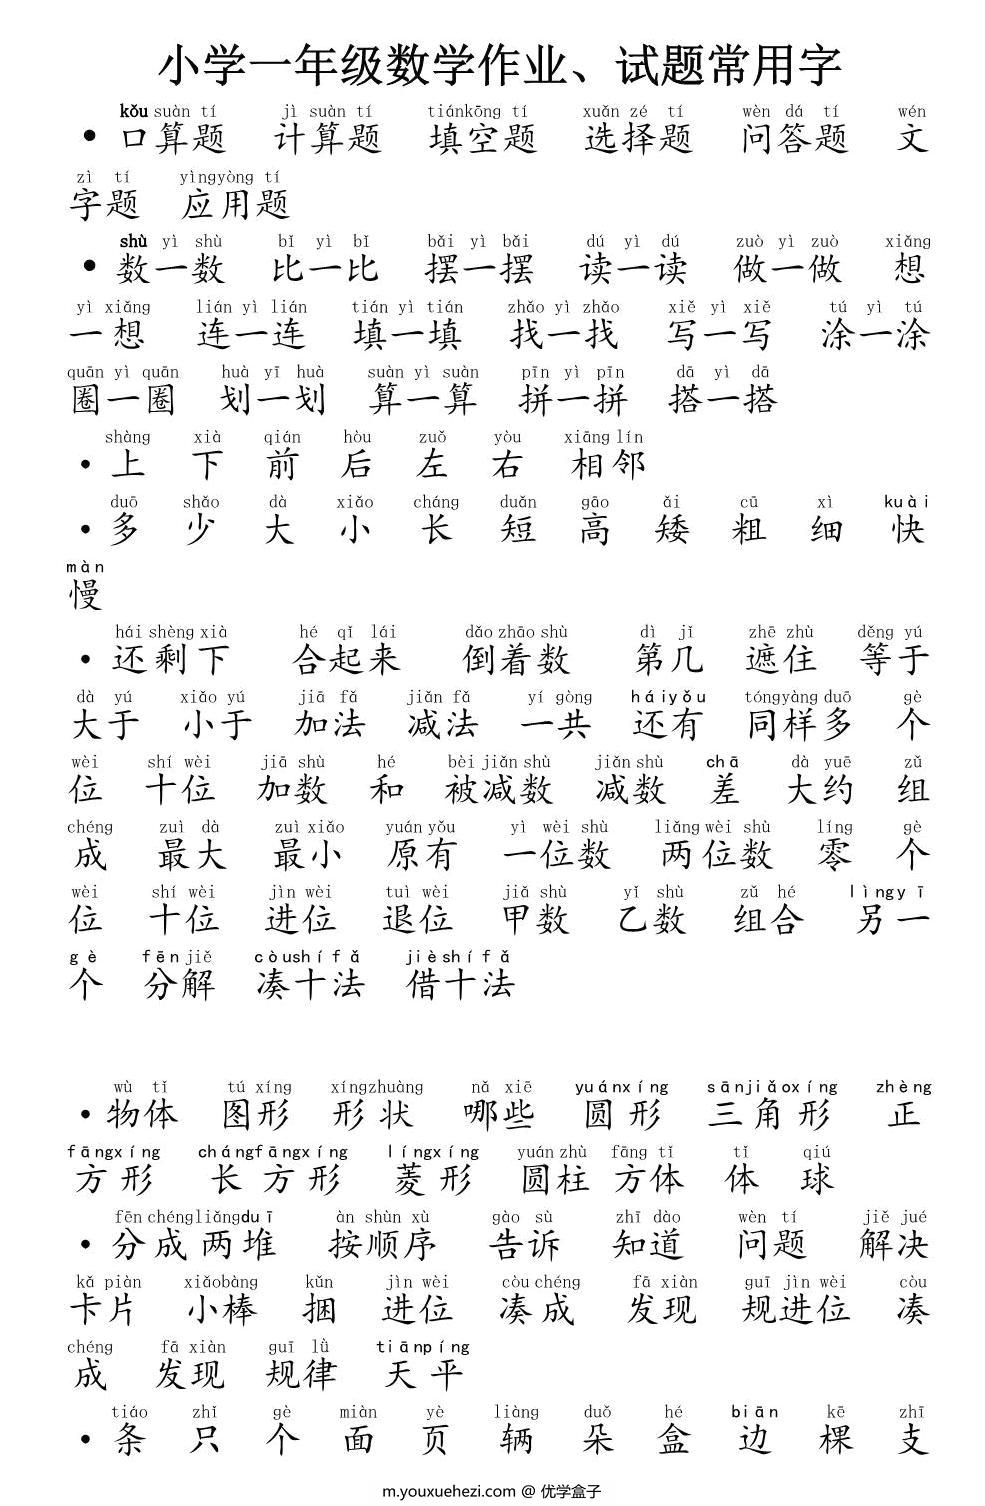 小学一年级数学作业、试题常用字
kǒu suàn tí jì suàn tí tiánkōng tí xuǎn zé tí wèn dá tí wén
• 口算题 计算题 填空题 选择题 问答题 文
zì tí yìngyòng tí
字题 应用题
shù yì shù bǐ yì bǐ bǎi yì bǎi dú yì dú zuò yì zuò xiǎng
• 数一数 比一比 摆一摆 读一读 做一做 想
yì xiǎng lián yì lián tián yì tián zhǎo yì zhǎo xiě yì xiě tú yì tú
一想 连一连 填一填 找一找 写一写 涂一涂
quān yì quān huà yī huà suàn yì suàn pīn yì pīn dā yì dā
圈一圈 划一划 算一算 拼一拼 搭一搭
shàng xià qián hòu zuǒ yòu xiāng lín
• 上 下 前 后 左 右 相邻
duō shǎo dà xiǎo cháng duǎn gāo ǎi cū xì kuài
• 多 少 大 小 长 短 高 矮 粗 细 快
màn
慢
hái shèng xià hé qǐ lái dǎo zhāo shù dì jǐ zhē zhù děng yú
• 还剩下 合起来 倒着数 第几 遮住 等于
dà yú xiǎo yú jiā fǎ jiǎn fǎ yí gòng háiyǒu tóngyàng duō gè
大于 小于 加法 减法 一共 还有 同样多 个
wèi shí wèi jiā shù hé bèi jiǎn shù jiǎn shù chā dà yuē zǔ
位 十位 加数 和 被减数 减数 差 大约 组
chéng zuì dà zuì xiǎo yuán yǒu yì wèi shù liǎng wèi shù líng gè
成 最大 最小 原有 一位数 两位数 零 个
wèi shí wèi jìn wèi tuì wèi jiǎ shù yǐ shù zǔ hé lìngyī
位 十位 进位 退位 甲数 乙数 组合 另一
gè fēn jiě còushífǎ jièshífǎ
个 分解 凑十法 借十法
wù tǐ tú xíng xíngzhuàng nǎ xiē yuánxíng sānjiǎoxíng zhèng
• 物体 图形 形状 哪些 圆形 三角形 正
fāngxíng chángfāngxíng língxíng yuán zhù fāng tǐ tǐ qiú
方形 长方形 菱形 圆柱 方体 体 球
fēn chéng liǎng duī àn shùn xù gào sù zhī dào wèn tí jiě jué
• 分成两堆 按顺序 告诉 知道 问题 解决
kǎ piàn xiǎobàng kǔn jìn wèi còu chéng fā xiàn guī jìn wèi còu
卡片 小棒 捆 进位 凑成 发现 规进位 凑
chéng fā xiàn guī lǜ tiānpíng
成 发现 规律 天平
tiáo zhǐ gè miàn yè liàng duǒ hé biān kē zhī
• 条 只 个 面 页 辆 朵 盒 边 棵 支
m.youxuehezi.com @ 优学盒子